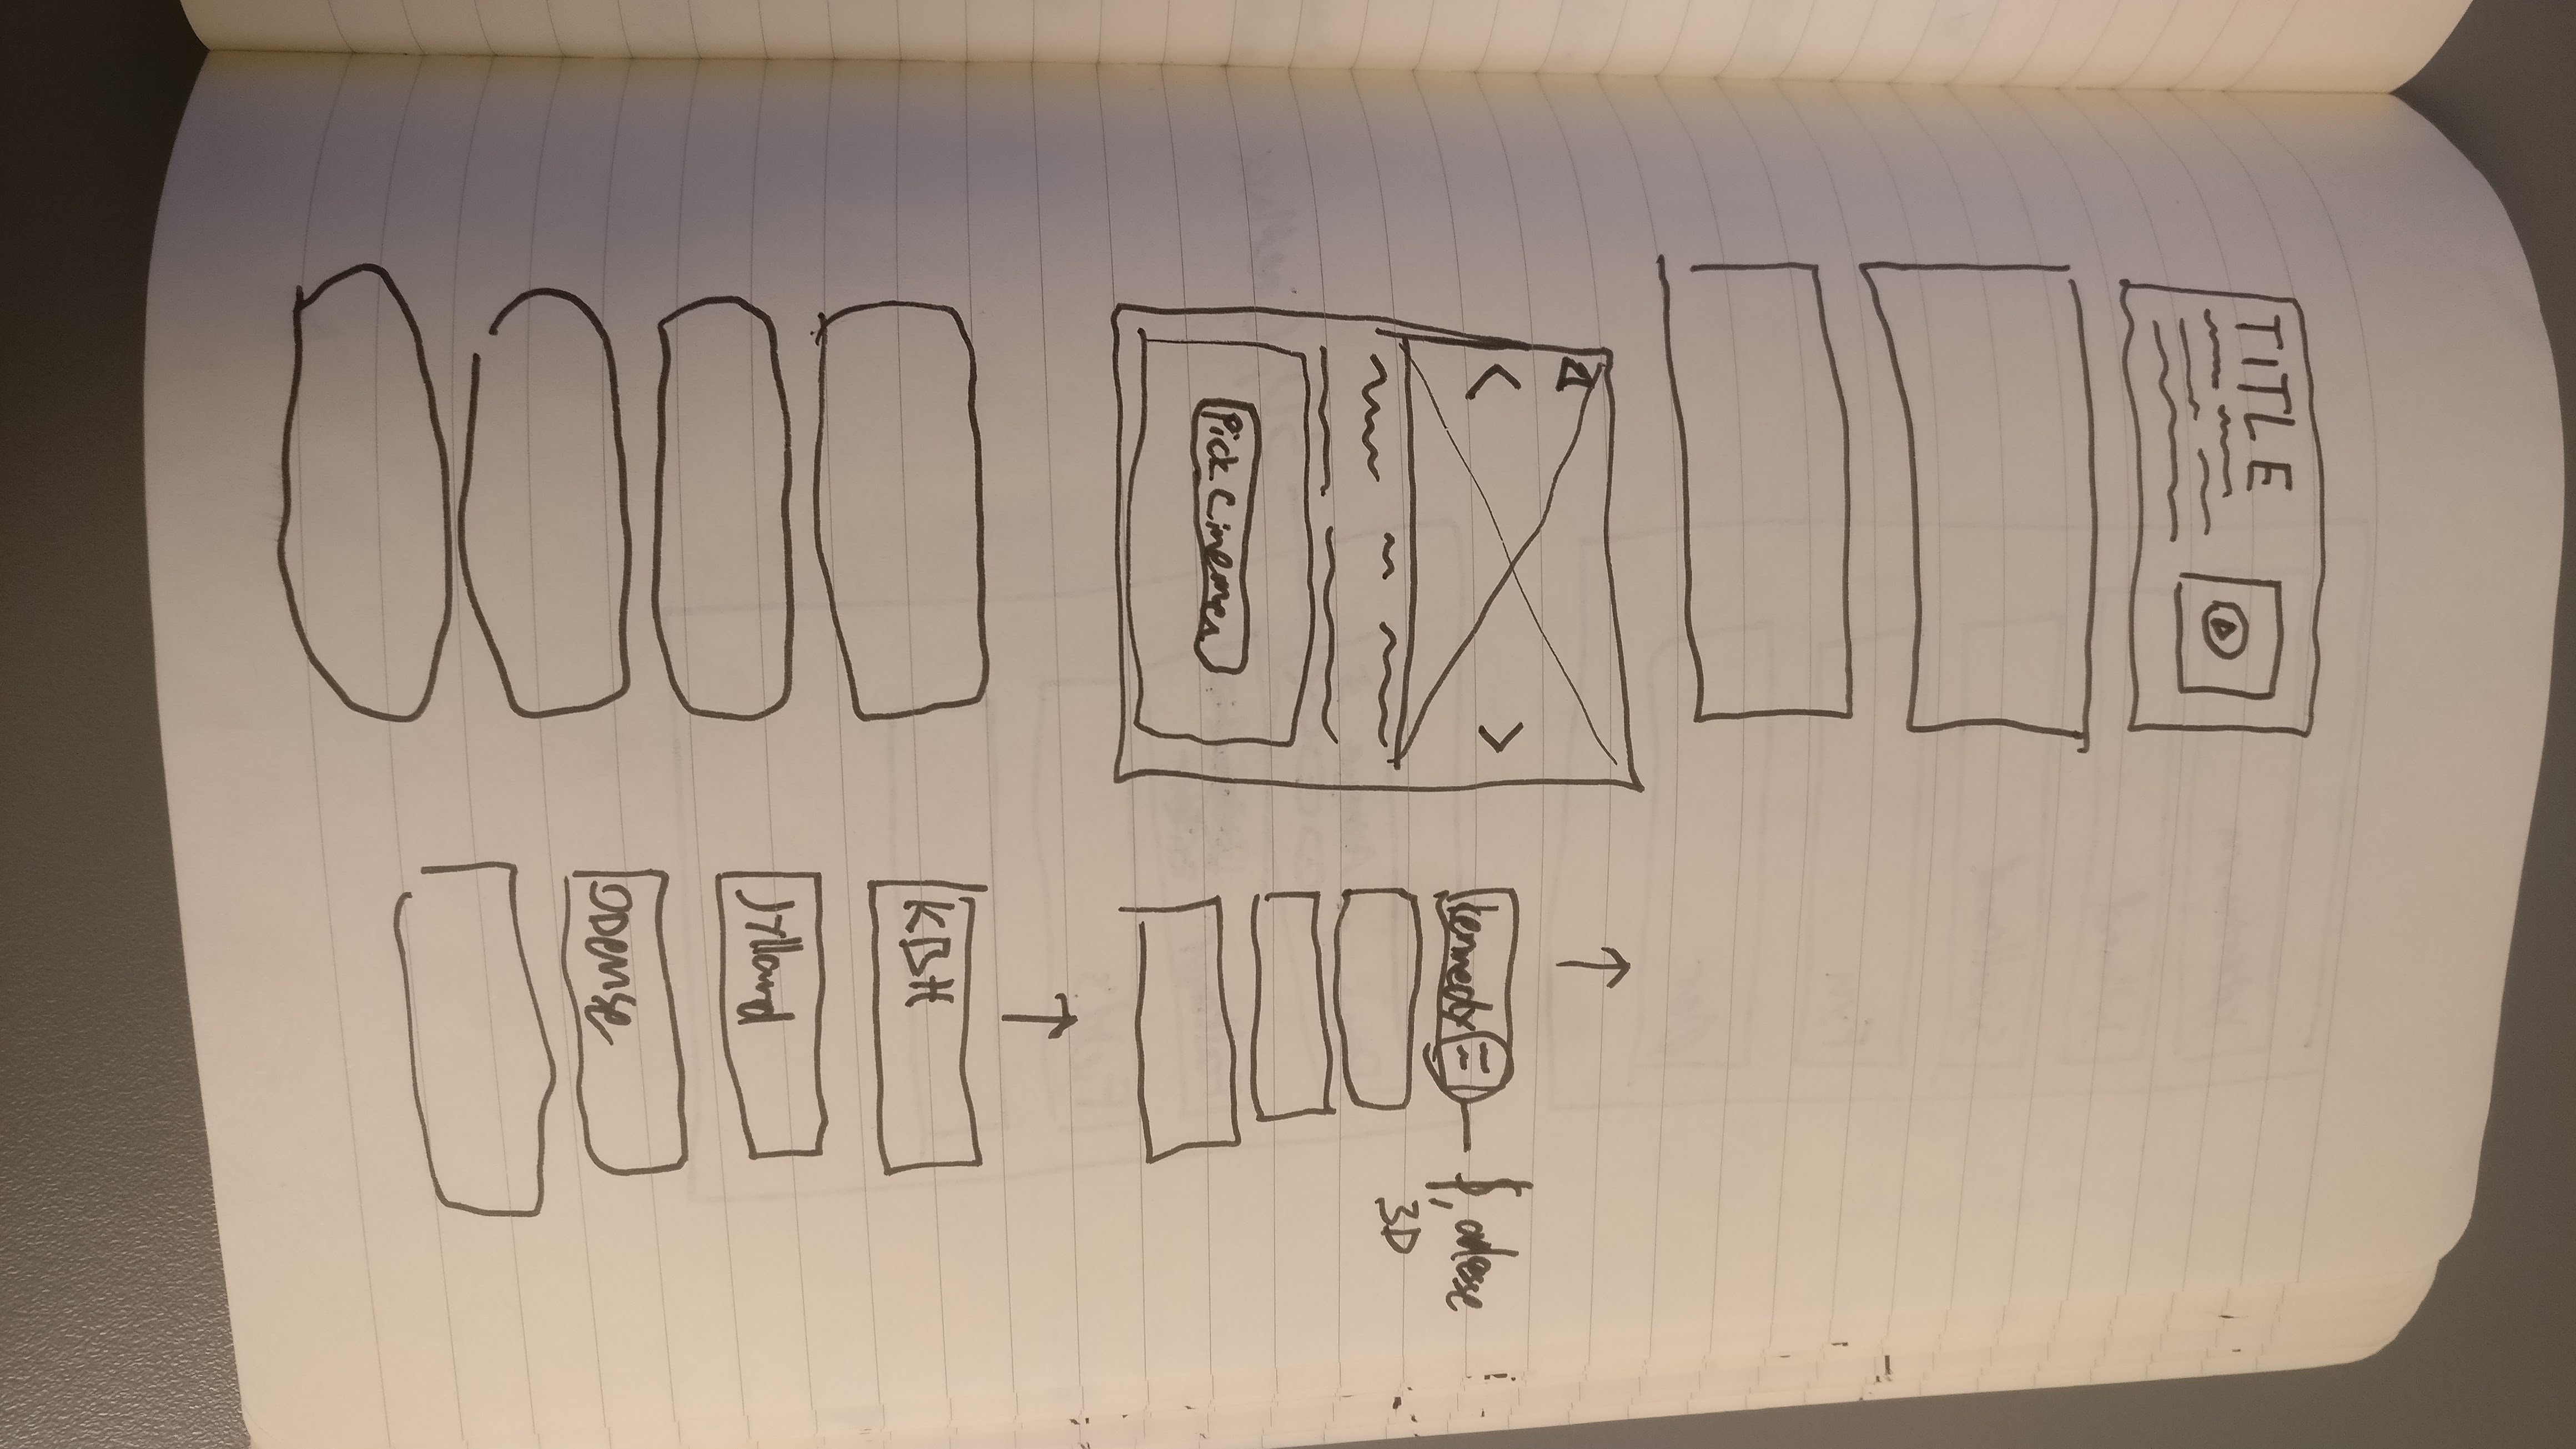 TITLE
Pick Cinema
Kennedy
$, adresse
3D
KBH
Jylland
ODense